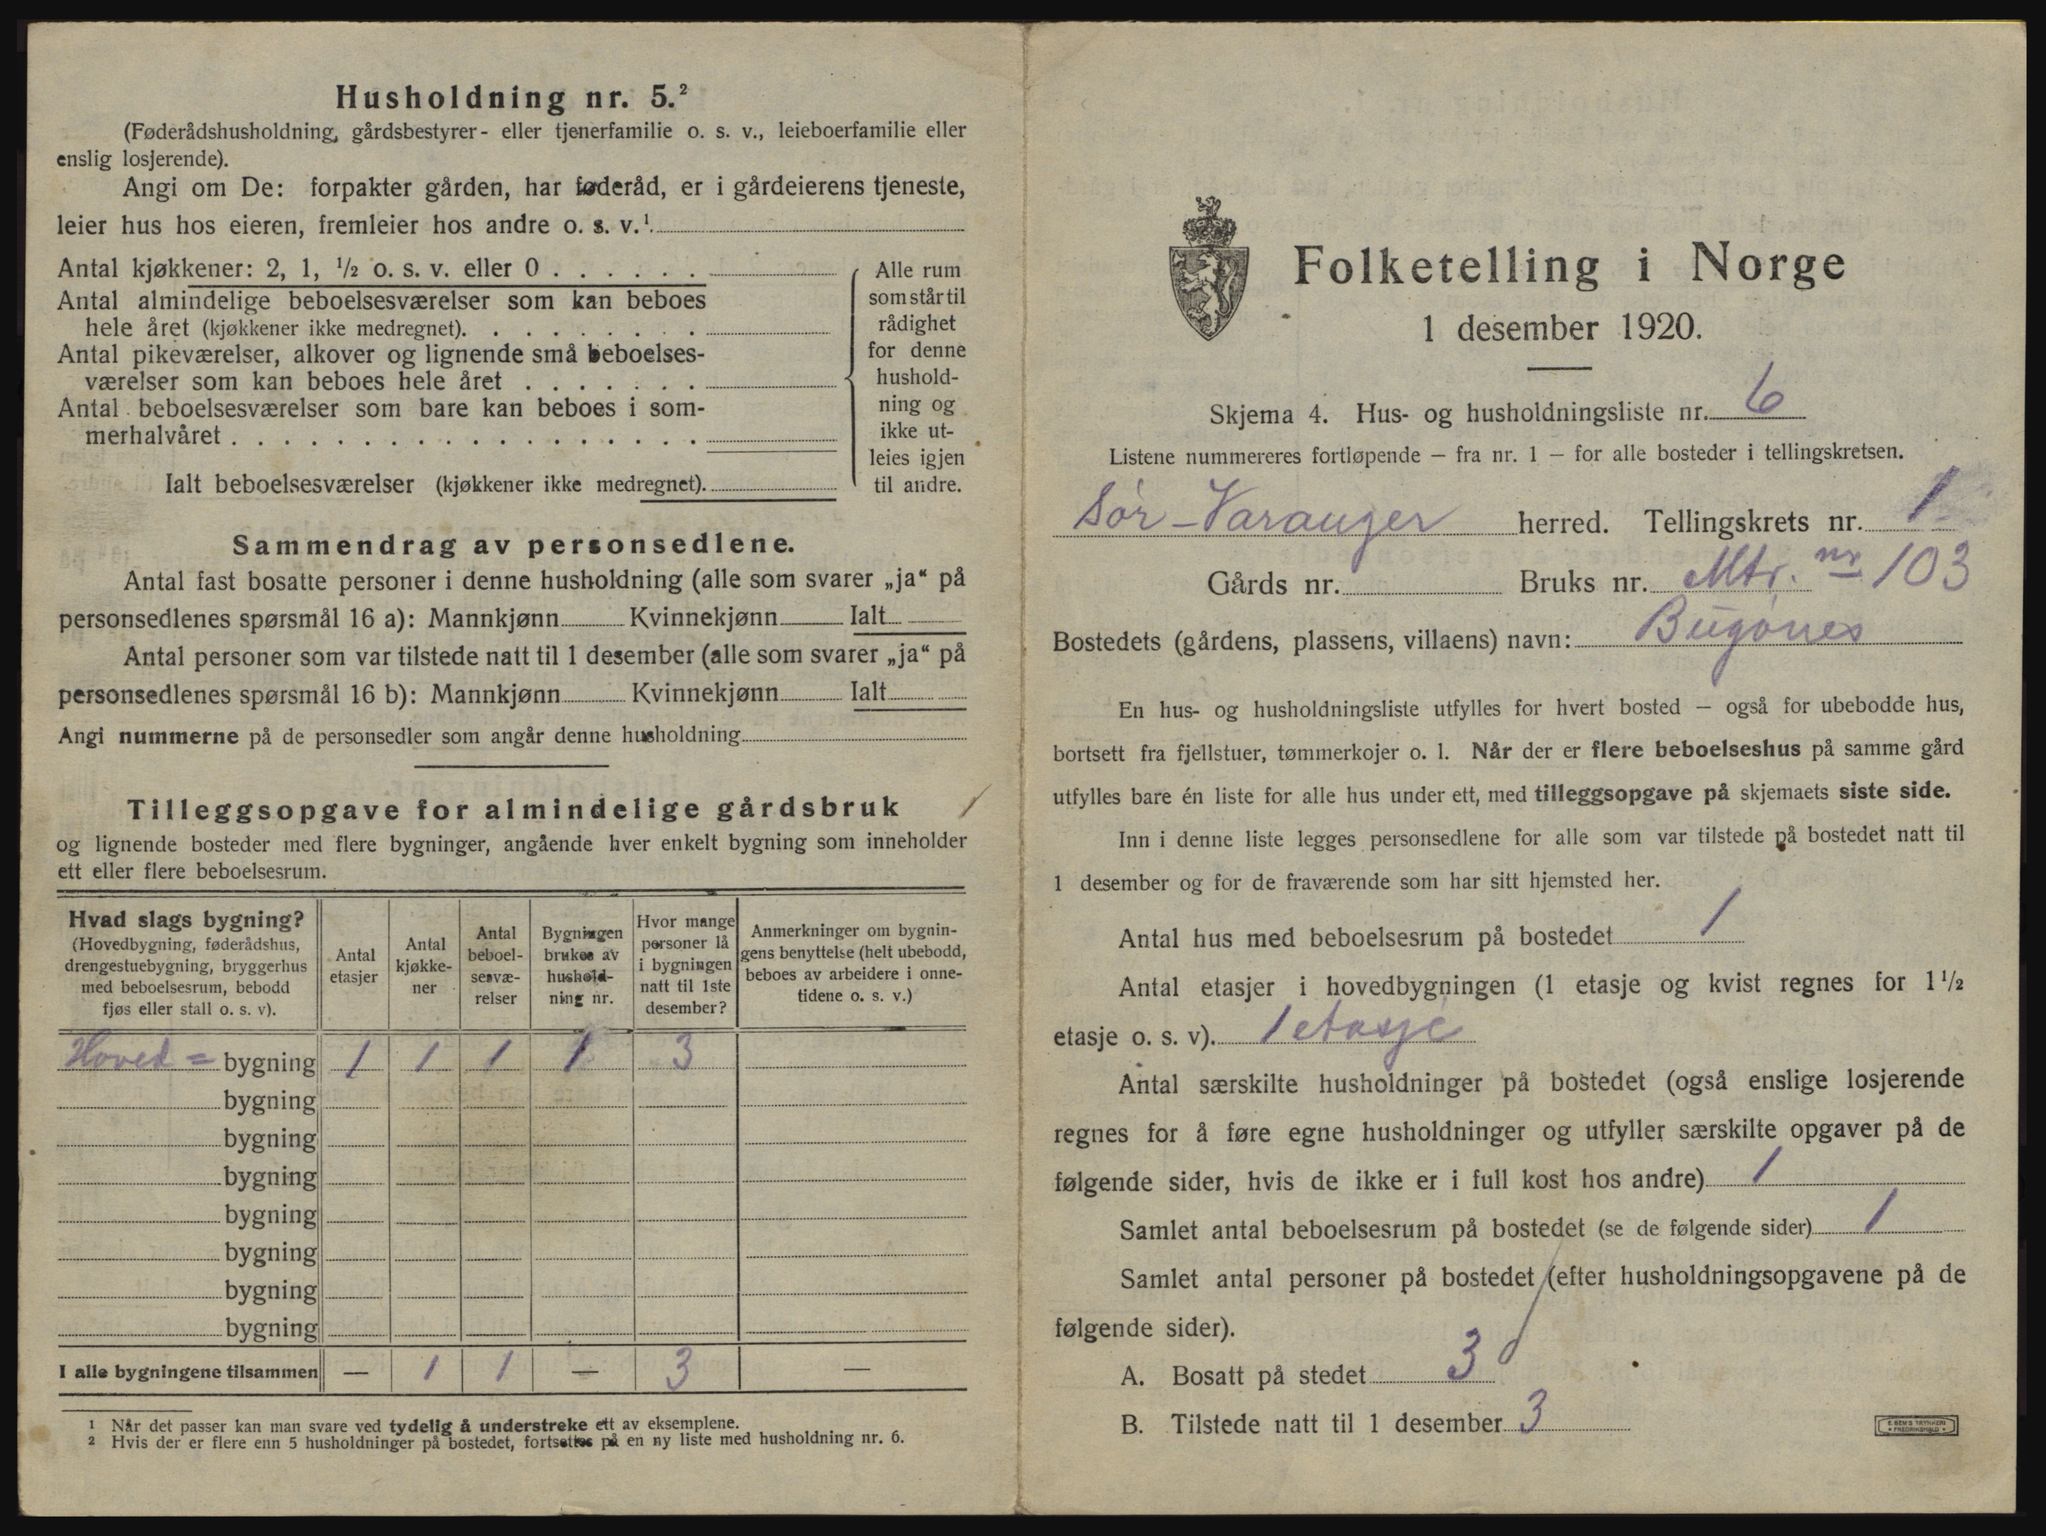 Husholdning nr. 5.²
(Føderådshusholdning, gårdsbestyrer- eller tjenerfamilie o. s. v., leieboerfamilie eller
enslig losjerende).
Angi om De: forpakter gården, har føderåd, er i gårdeierens tjeneste,
leier hus hos eieren, fremleier hos andre o. s. v.¹
Antal kjøkkener: 2, 1, ½ o. s. v. eller 0 . . . . . .
Antal almindelige beboelsesværelser som kan beboes
hele året (kjøkkener ikke medregnet). . . . . . . . .
Antal pikeværelser, alkover og lignende små beboelses-
værelser som kan beboes hele året . . . . . . .
Antal beboelsesværelser som bare kan beboes i som-
merhalvåret . . . . . . . . . . . . . . . . . .
Ialt beboelsesværelser (kjøkkener ikke medregnet).
Alle rum
som står til
rådighet
for denne
hushold-
ning og
ikke ut-
leies igjen
til andre.
Sammendrag av personsedlene.
Antal fast bosatte personer i denne husholdning (alle som svarer „ja“ på
personsedlenes spørsmål 16 a): Mannkjønn Kvinnekjønn Ialt
Antal personer som var tilstede natt til 1 desember (alle som svarer „ja“ på
personsedlenes spørsmål 16 b): Mannkjønn Kvinnekjønn Ialt
Angi nummerne på de personsedler som angår denne husholdning
Tilleggsopgave for almindelige gårdsbruk
og lignende bosteder med flere bygninger, angående hver enkelt bygning som inneholder
ett eller flere beboelsesrum.
Hvad slags bygning?
(Hovedbygning, føderådshus,
drengestuebygning, bryggerhus
med beboelsesrum, bebodd
fjøs eller stall o. s. v).
Antal
etasjer
Antal
kjøkke-
ner
Antal
beboel-
sesvæ-
relser
Bygningen
brukes av
hushold-
ning nr.
Hvor mange
personer lå
i bygningen
natt til 1ste
desember?
Anmerkninger om bygnin-
gens benyttelse (helt ubebodd,
beboes av arbeidere i onne-
tidene o. s. v.)
Hoved = bygning 1 1 1 1 3
bygning
bygning
bygning
bygning
bygning
bygning
bygning
I alle bygningene tilsammen — 1 1 — 3 —
¹ Når det passer kan man svare ved tydelig å understreke ett av eksemplene.
² Hvis der er flere enn 5 husholdninger på bostedet, fortsettes på en ny liste med husholdning nr. 6.
Folketelling i Norge
1 desember 1920.
Skjema 4. Hus- og husholdningsliste nr. 6
Listene nummereres fortløpende — fra nr. 1 — for alle bosteder i tellingskretsen.
Sør-Varanger herred. Tellingskrets nr. 1
Gårds nr. Bruks nr. Mtr. nr 103
Bostedets (gårdens, plassens, villaens) navn: Bugønes
En hus- og husholdningsliste utfylles for hvert bosted — også for ubebodde hus,
bortsett fra fjellstuer, tømmerkojer o. l. Når der er flere beboelseshus på samme gård
utfylles bare én liste for alle hus under ett, med tilleggsopgave på skjemaets siste side.
Inn i denne liste legges personsedlene for alle som var tilstede på bostedet natt til
1 desember og for de fraværende som har sitt hjemsted her.
Antal hus med beboelsesrum på bostedet 1
Antal etasjer i hovedbygningen (1 etasje og kvist regnes for 1½
etasje o. s. v). 1 etasje
Antal særskilte husholdninger på bostedet (også enslige losjerende
regnes for å føre egne husholdninger og utfyller særskilte opgaver på de
følgende sider, hvis de ikke er i full kost hos andre) 1
Samlet antal beboelsesrum på bostedet (se de følgende sider) 1
Samlet antal personer på bostedet (efter husholdningsopgavene på de
følgende sider).
A. Bosatt på stedet 3
B. Tilstede natt til 1 desember 3